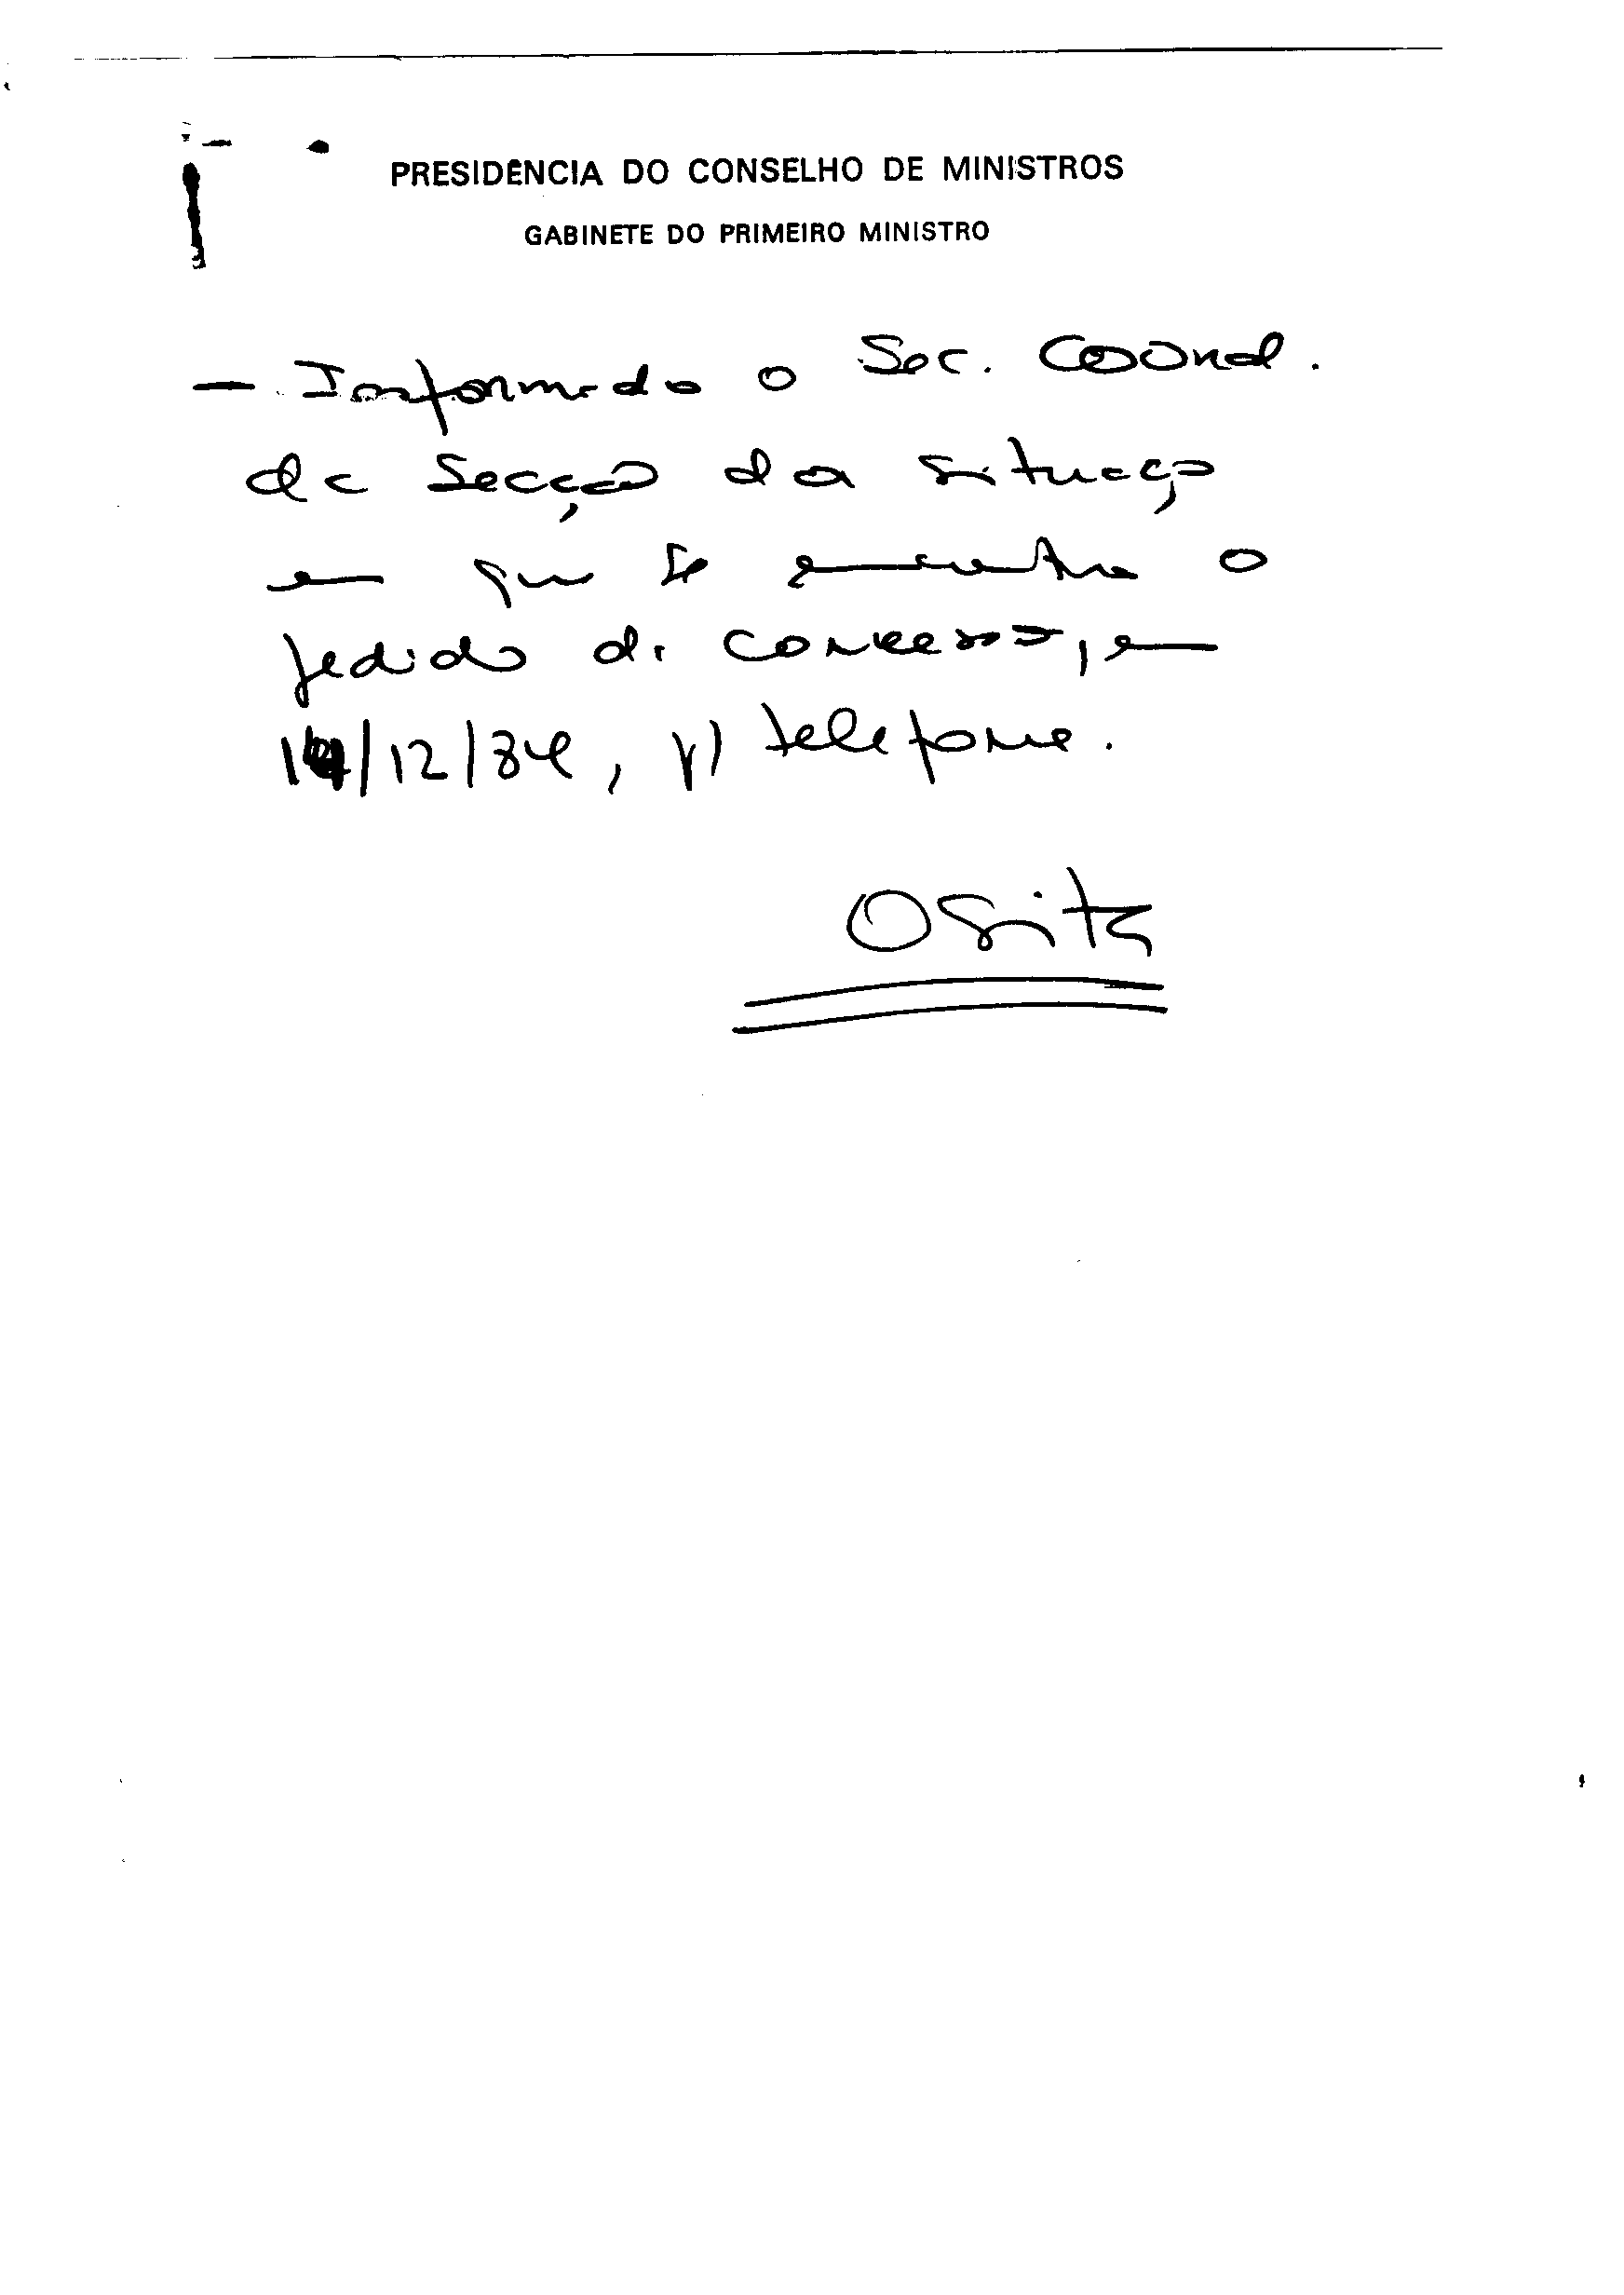 PRESIDÊNCIA DO CONSELHO DE MINISTROS
GABINETE DO PRIMEIRO MINISTRO
- Informado o Sec. Coord.
da Secção da situação
em que se encontra o
pedido de concessão, em
14/12/84, p/ telefone.